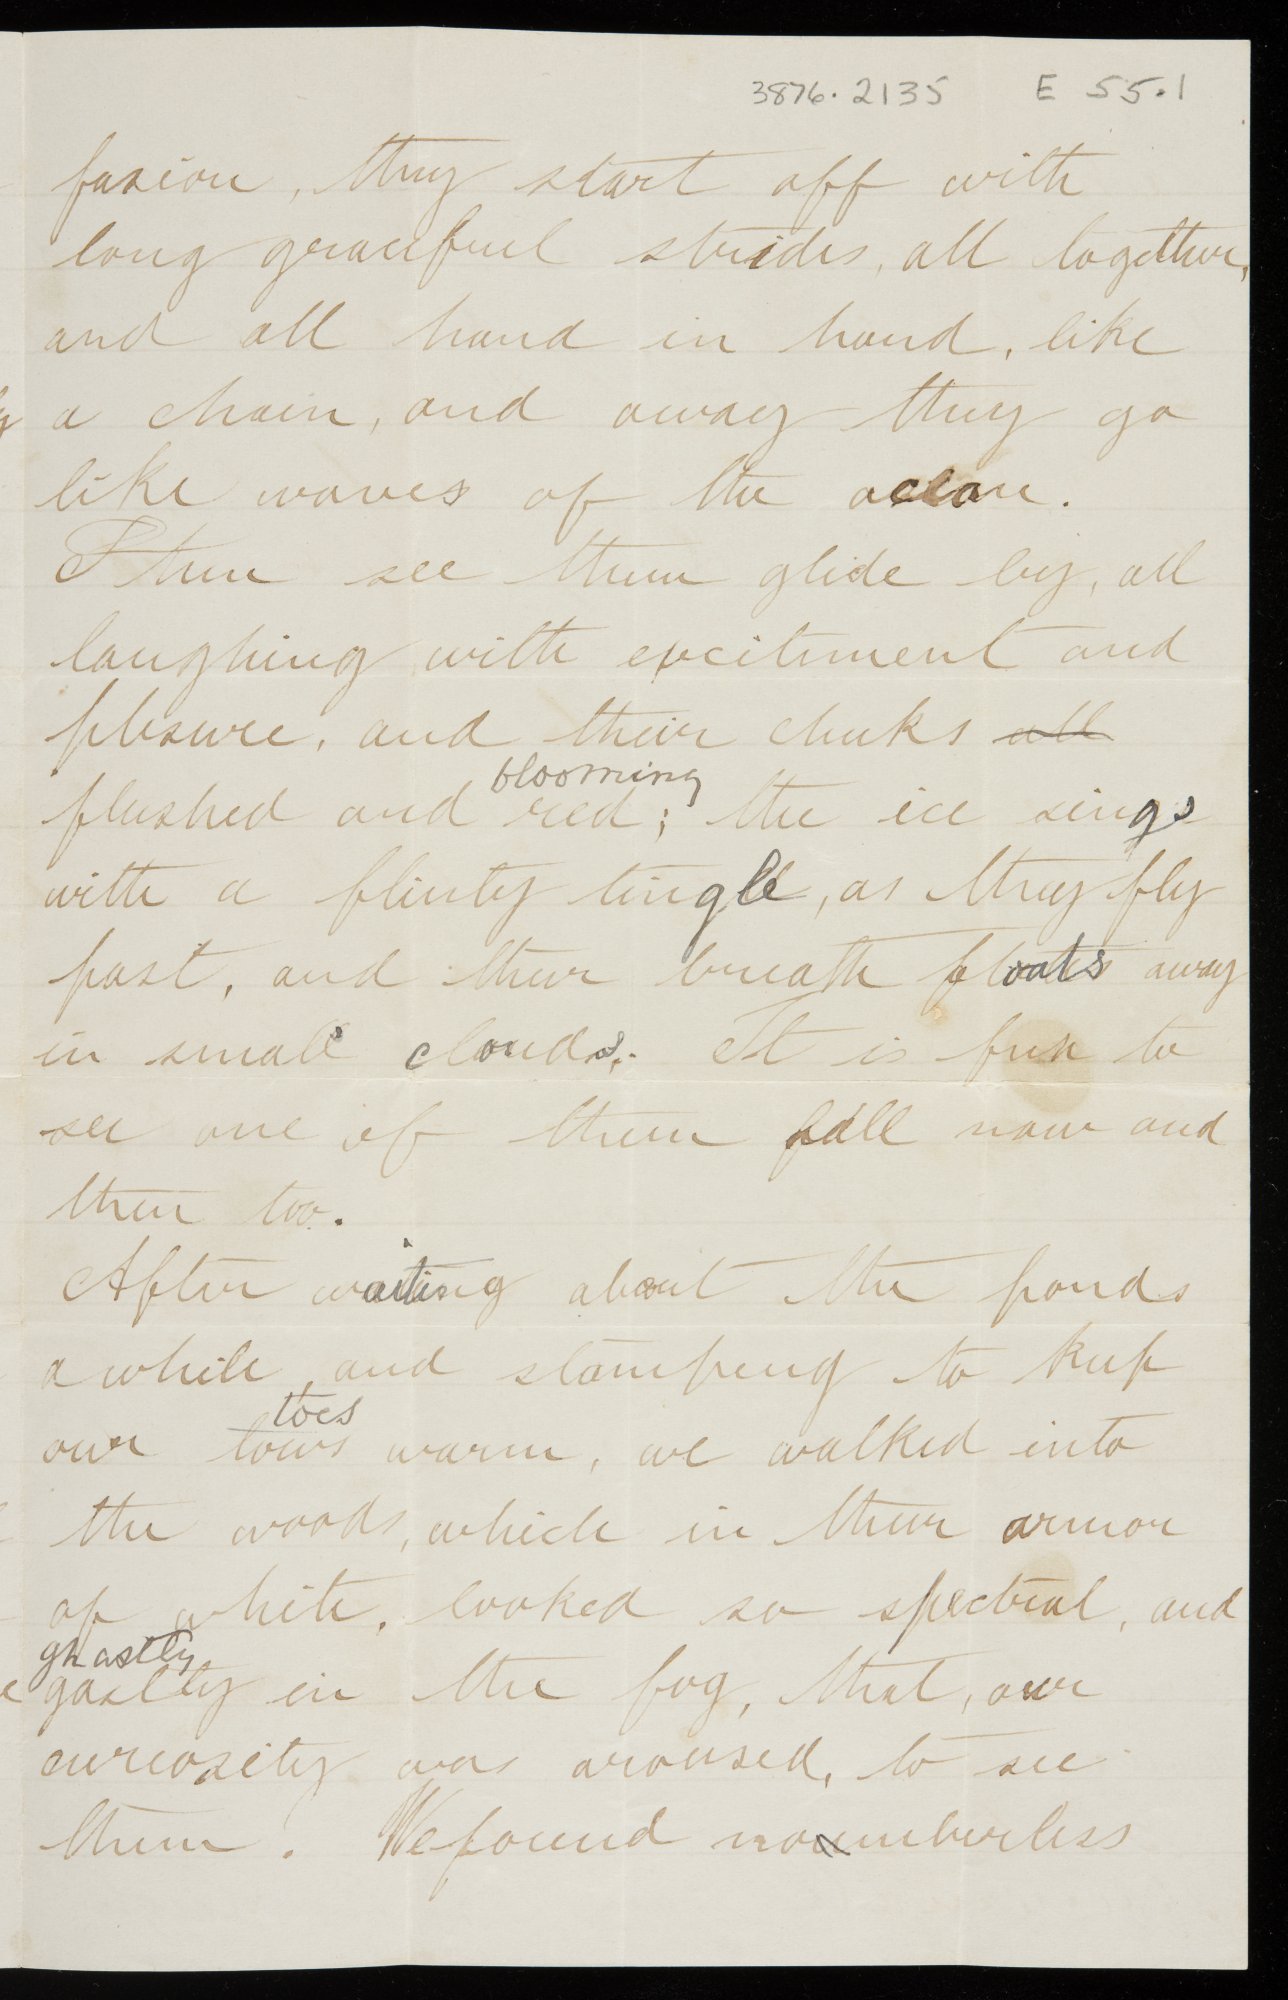 3876.2135 E 55.1
fasion, they start off with
long graceful strides, all together,
and all hand in hand, like
a chain, and away they go
like waves of the ocean.
I then see them glide by, all
laughing with excitment and
plesure, and their cheeks all
blooming
flushed and red; the ice sings
with a flinty tingle, as they fly
past, and their breath floats away
in small clouds. It is fun to
see one of them fall now and
then too.
After waiting about the ponds
a while, and stamping to keep
toes
our tows warm, we walked into
the woods, which in their armor
of white, looked so spectral, and
ghastly
gastly in the fog, that, our
curiosity was aroused, to see
them. We found noumberless